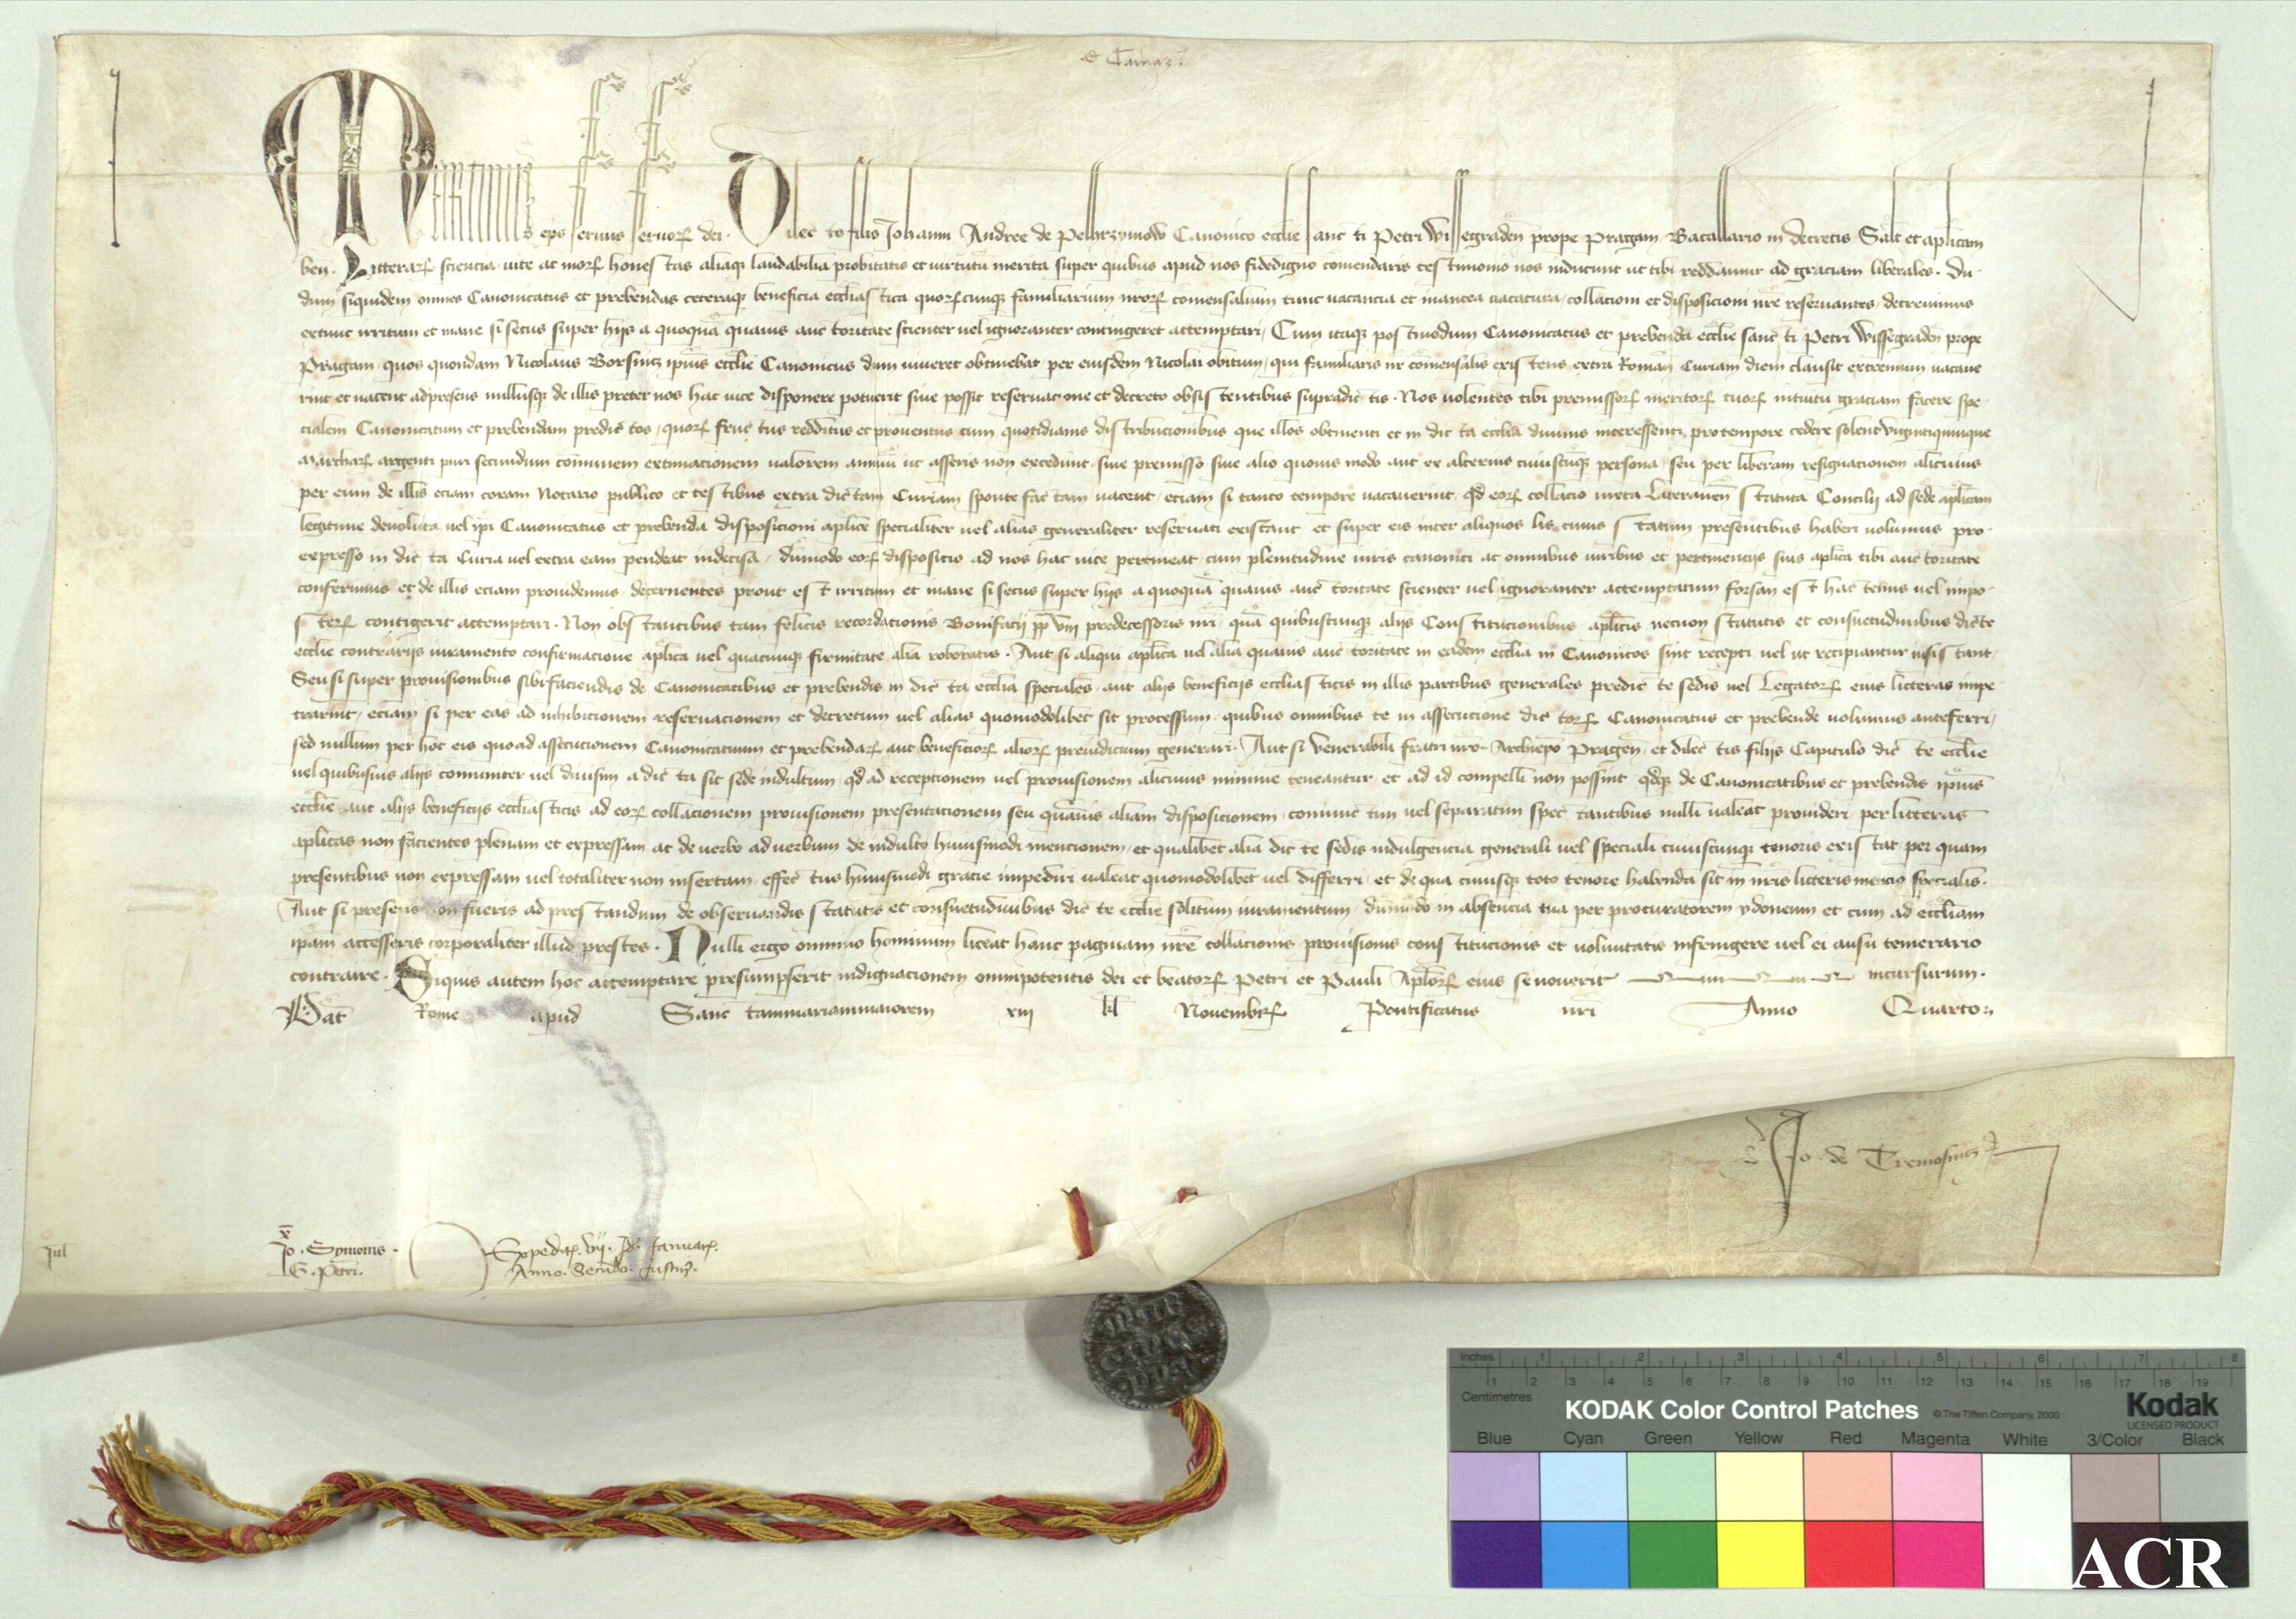 de Camaz.
Martinus eps seruus seruorꝝ dei. Dilecto filio Johanni Andree de Pelhrzymow Canonico ecclie sancti Petri Wissegraden prope Pragam Bacallario in decretis Salt et aplicam
ben. Litterarꝝ sciencia uite ac morꝝ honestas aliaqꝫ laudabilia probitatis et uirtutū merita super quibus apud nos fidedigno comendaris testimonio nos inducunt ut tibi reddamur ad graciam liberales. Du-
dum siquidem omnes Canonicatus et prebendas ceteraqꝫ beneficia ecclastica quorꝝcunqꝫ familiarium nrorꝝ comensalium tunc uacancia et inantea uacatura collacioni et disposicioni nre reseruantes decreuimus
extunc irritum et inane si secus super hijs a quoquā quauis auctoritate scienter uel ignoranter contingeret attemptari, Cum itaqꝫ postmodum Canonicatus et prebenda ecclie sancti Petri Wissegraden prope
Pragam quos quondam Nicolaus Borsintz ipius ecclie Canonicus dum uiueret obtinebat per eiusdem Nicolai obitum, qui familiaris nr comensalis existens extra Romanā Curiam diem clausit extremum uacaue
rint et uacent adpresens nullusqꝫ de illis preter nos hac uice disponere potuerit siue possit reseruacione et decreto obsistentibus supradictis. Nos uolentes tibi premissorꝝ meritorꝝ tuorꝝ intuitu graciam facere spe-
cialem Canonicatum et prebendam predictos, quorꝝ fructus redditus et prouentus cum quotidianis distribucionibus que illos obtinenti et in dicta ecclia diuinis interessenti protempore cedere solent uigintiquinque
Marcharꝝ argenti puri secundum comunem extimacionem ualorem annuū ut asseris non excedunt siue premisso siue alio quouis modo aut ex alterius cuiuscūqꝫ persona, seu per liberam resignacionem alicuius
per eum de illis eciam coram Notario publico et testibus extra dictam Curiam sponte factam uacent, eciam si tanto tempore uacauerint, qd eorꝝ collacio iuxta Lateranen Statuta Concilij ad sedē aplicam
legitime deuoluta, uel ipi Canonicatus et prebenda disposicioni aplice specialiter uel alias generaliter reseruati existant, et super eis inter aliquos lis cuius statum presentibus haberi uolumus pro
expresso in dicta Curia uel extra eam pendeat indecisa, dūmodo eorꝝ disposicio ad nos hac uice pertineat, cum plenitudine iuris canonici ac omnibus iuribus et pertinencijs suis aplica tibi auctoritate
conferimus et de illis eciam prouidemus decernentes prout est irritum et inane si secus super hijs a quoquā quauis auctoritate scienter uel ignoranter attemptatum forsan est hactenus uel impo-
sterꝝ contigerit attemptari. Non obstantibus tam felicis recordacionis Bonifacij pp VIII predecessoris nri, quā quibuscunqꝫ alijs Constitucionibus aplicis necnon Statutis et consuetudinibus dicte
ecclie contrarijs iuramento confirmacione aplica uel quacunqꝫ firmitate alia roboratis. Aut si aliqui aplica uel alia quauis auctoritate in eadem ecclia in Canonicos sint recepti uel ut recipiantur insistant,
Seu si super prouisionibus sibi faciendis de Canonicatibus et prebendis in dicta ecclia speciales, aut alijs beneficijs ecclasticis in illis partibus generales predicte sedis uel Legatorꝝ eius litteras impe
trarint, eciam si per eas ad inhibicionem reseruacionem et decretum uel alias quomodolibet sit processum, quibus omnibus te in assecucione dictorꝝ Canonicatus et prebende uolumus anteferri,
sed nullum per hoc eis quoad assecucionem Canonicatuum et prebendarꝝ aut beneficiorꝝ aliorꝝ preiudicium generari. Aut si Venerabili fratri nro Archiepo Pragen, et dilectis filijs Capitulo dicte ecclie
uel quibusuis alijs comuniter uel diuisim a dicta sit sede indultum, qd ad recepcionem uel prouisionem alicuius minime teneantur, et ad id compelli non possint qdqꝫ de Canonicatibus et prebendis ipius
ecclie aut alijs beneficijs ecclasticis ad eorꝝ collacionem prouisionem presentacionem seu quāuis aliam disposicionem coniunctim uel separatim spectantibus nulli ualeat prouideri per litteras
aplicas non facientes plenam et expressam ac de uerbo aduerbum de indulto huiusmodi mencionem, et qualibet alia dicte sedis indulgencia generali uel speciali cuiuscunqꝫ tenoris existat, per quam
presentibus non expressam uel totaliter non insertam, effectus huiusmodi gracie impediri ualeat quomodolibet uel differri, et de qua cuiusqꝫ toto tenore habenda sit in nris litteris mencio specialis.
Aut si presens non fueris ad prestandum de obseruandis Statutis et consuetudinibus dicte ecclie solitum iuramentum, dūmodo in absencia tua per procuratorem ydoneum et cum ad eccliam
ipam accesseris corporaliter illud prestes. Nulli ergo omnino hominum liceat hanc paginam nre collacionis prouisionis constitucionis et uoluntatis infringere uel ei ausu temerario
contraire. Siquis autem hoc attemptare presumpserit indignacionem omnipotentis dei et beatorꝝ Petri et Pauli Aplorꝝ eius se nouerit incursurum.
Dat Rome apud Sanctammariammaiorem xiij kl Nouembrꝝ Pontificatus nri Anno Quarto
Jo. de Tremosintz
Jul
x
Jo. Symonis
G. Petri.
Expedit. vij. Id. Januar.
Anno. Secūdo.
Inches 1 2 3 4 5 6 7 8
Centimetres 1 2 3 4 5 6 7 8 9 10 11 12 13 14 15 16 17 18 19
KODAK Color Control Patches © The Tiffen Company, 2000 Kodak
LICENSED PRODUCT
Blue Cyan Green Yellow Red Magenta White 3/Color Black
NACR